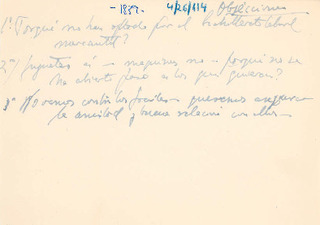 - 1837. 4/26/114 Objeciones
1ª Porqué no han optado por el bachillerato laboral
mercantil?
2ª Juguetes si - maquinas no - porqué no se
ha abierto para a los que quieran?
3ª No vemos contra los frailes - queremos asegurar
la amistad y buena relación con ellos -